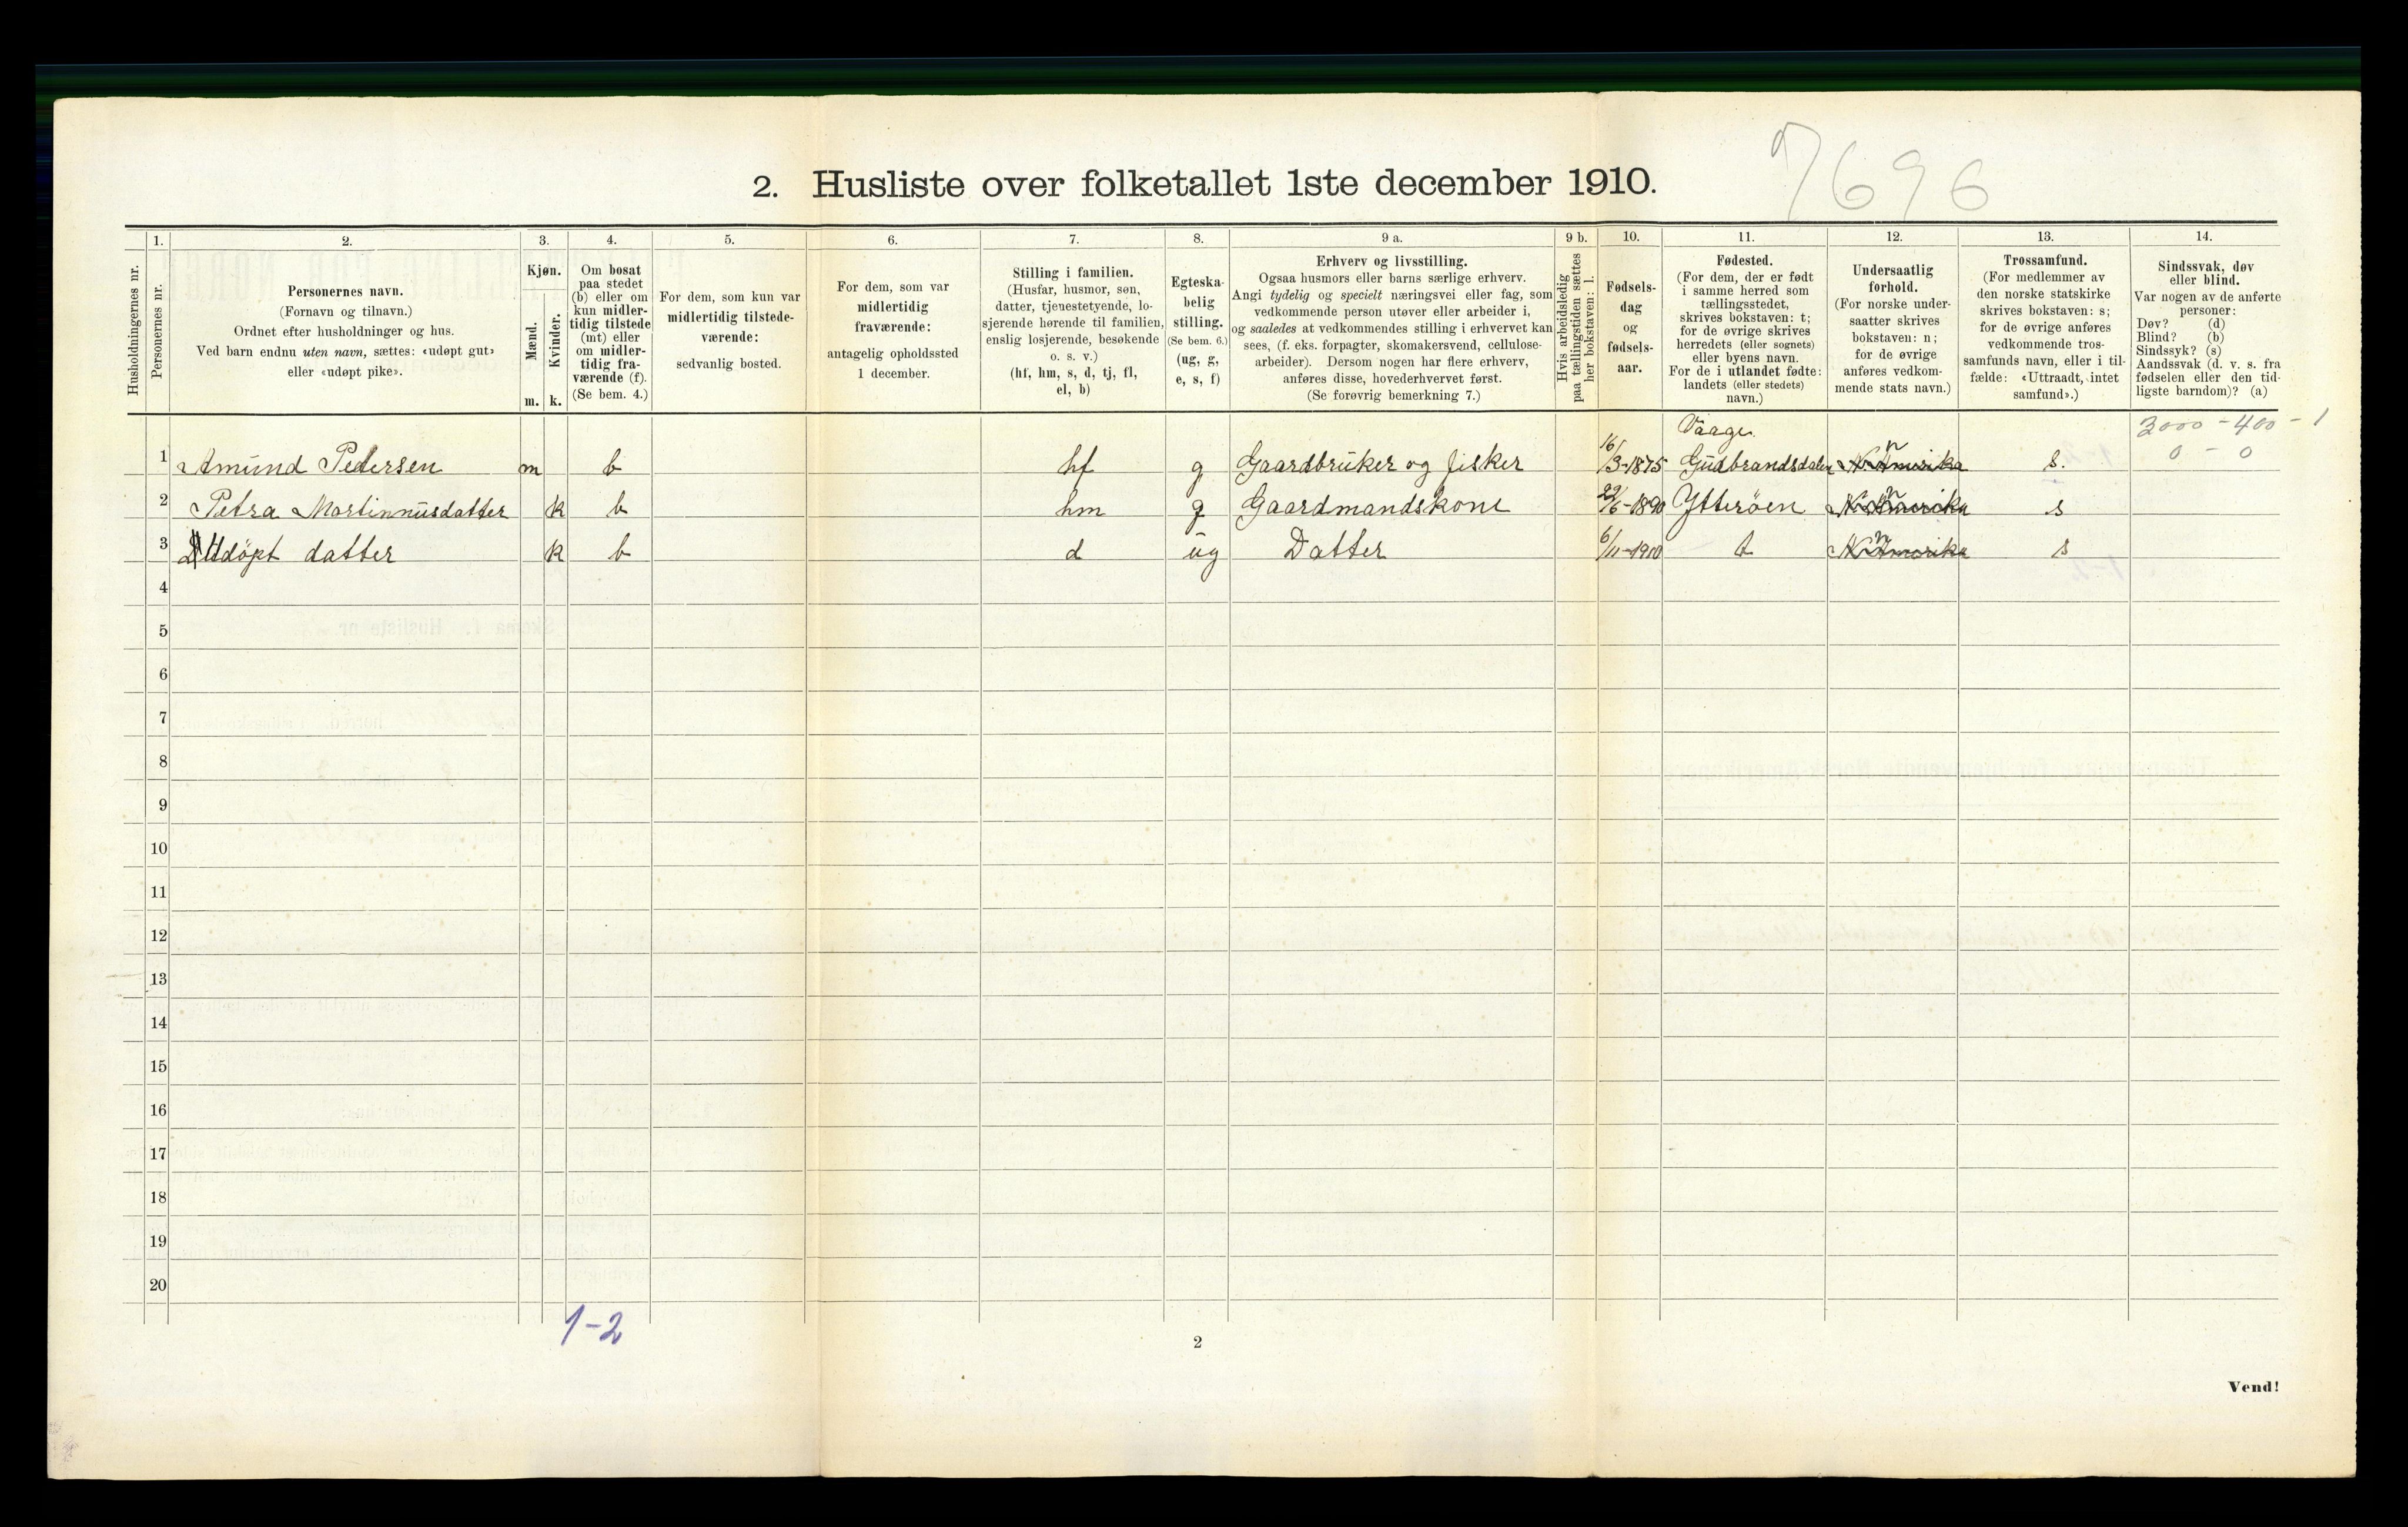 7696
2. Husliste over folketallet 1ste december 1910.
Husholdningernes nr.
1.
Personernes nr.
2.
Personernes navn.
(Fornavn og tilnavn.)
Ordnet efter husholdninger og hus.
Ved barn endnu uten navn, sættes: «udøpt gut»
eller «udøpt pike».
3.
Kjøn.
Mænd.
Kvinder.
m. k.
4.
Om bosat
paa stedet
(b) eller om
kun midler-
tidig tilstede
(mt) eller
om midler-
tidig fra-
værende (f).
(Se bem. 4.)
5.
For dem, som kun var
midlertidig tilstede-
værende:
sedvanlig bosted.
6.
For dem, som var
midlertidig
fraværende:
antagelig opholdssted
1 december.
7.
Stilling i familien.
(Husfar, husmor, søn,
datter, tjenestetyende, lo-
sjerende hørende til familien,
enslig losjerende, besøkende
o. s. v.)
(hf, hm, s, d, tj, fl,
el, b)
8.
Egteska-
belig
stilling.
(Se bem. 6.)
(ug, g,
e, s, f)
9 a.
Erhverv og livsstilling.
Ogsaa husmors eller barns særlige erhverv.
Angi tydelig og specielt næringsvei eller fag, som
vedkommende person utøver eller arbeider i,
og saaledes at vedkommendes stilling i erhvervet kan
sees, (f. eks. forpagter, skomakersvend, cellulose-
arbeider). Dersom nogen har flere erhverv,
anføres disse, hovederhvervet først.
(Se forøvrig bemerkning 7.)
9 b.
Hvis arbeidsledig
paa tællingstiden sættes
her bokstaven: l.
10.
Fødsels-
dag
og
fødsels-
aar.
11.
Fødested.
(For dem, der er født
i samme herred som
tællingsstedet,
skrives bokstaven: t;
for de øvrige skrives
herredets (eller sognets)
eller byens navn.
For de i utlandet fødte:
landets (eller stedets)
navn.)
12.
Undersaatlig
forhold.
(For norske under-
saatter skrives
bokstaven: n;
for de øvrige
anføres vedkom-
mende stats navn.)
13.
Trossamfund.
(For medlemmer av
den norske statskirke
skrives bokstaven: s;
for de øvrige anføres
vedkommende tros-
samfunds navn, eller i til-
fælde: «Uttraadt, intet
samfund».)
14.
Sindssvak, døv
eller blind.
Var nogen av de anførte
personer:
Døv? (d)
Blind? (b)
Sindssyk? (s)
Aandssvak (d. v. s. fra
fødselen eller den tid-
ligste barndom)? (a)
Vaage 3000 - 400 - 1
1 Amund Pedersen m b hf g Gaardbruker og fisker 16/3-1875 Gudbrandsdalen N. Amerika n s. 0 - 0
2 Petra Martinnusdatter k b hm g Gaardmandskone 22/6-1890 Ytterøen N. Amerika n s
3 Udöpt datter k b d ug Datter 6/11-1910 t N. Amerika n s
4
5
6
7
8
9
10
11
12
13
14
15
16
17
18
19
20
1-2
2
Vend!